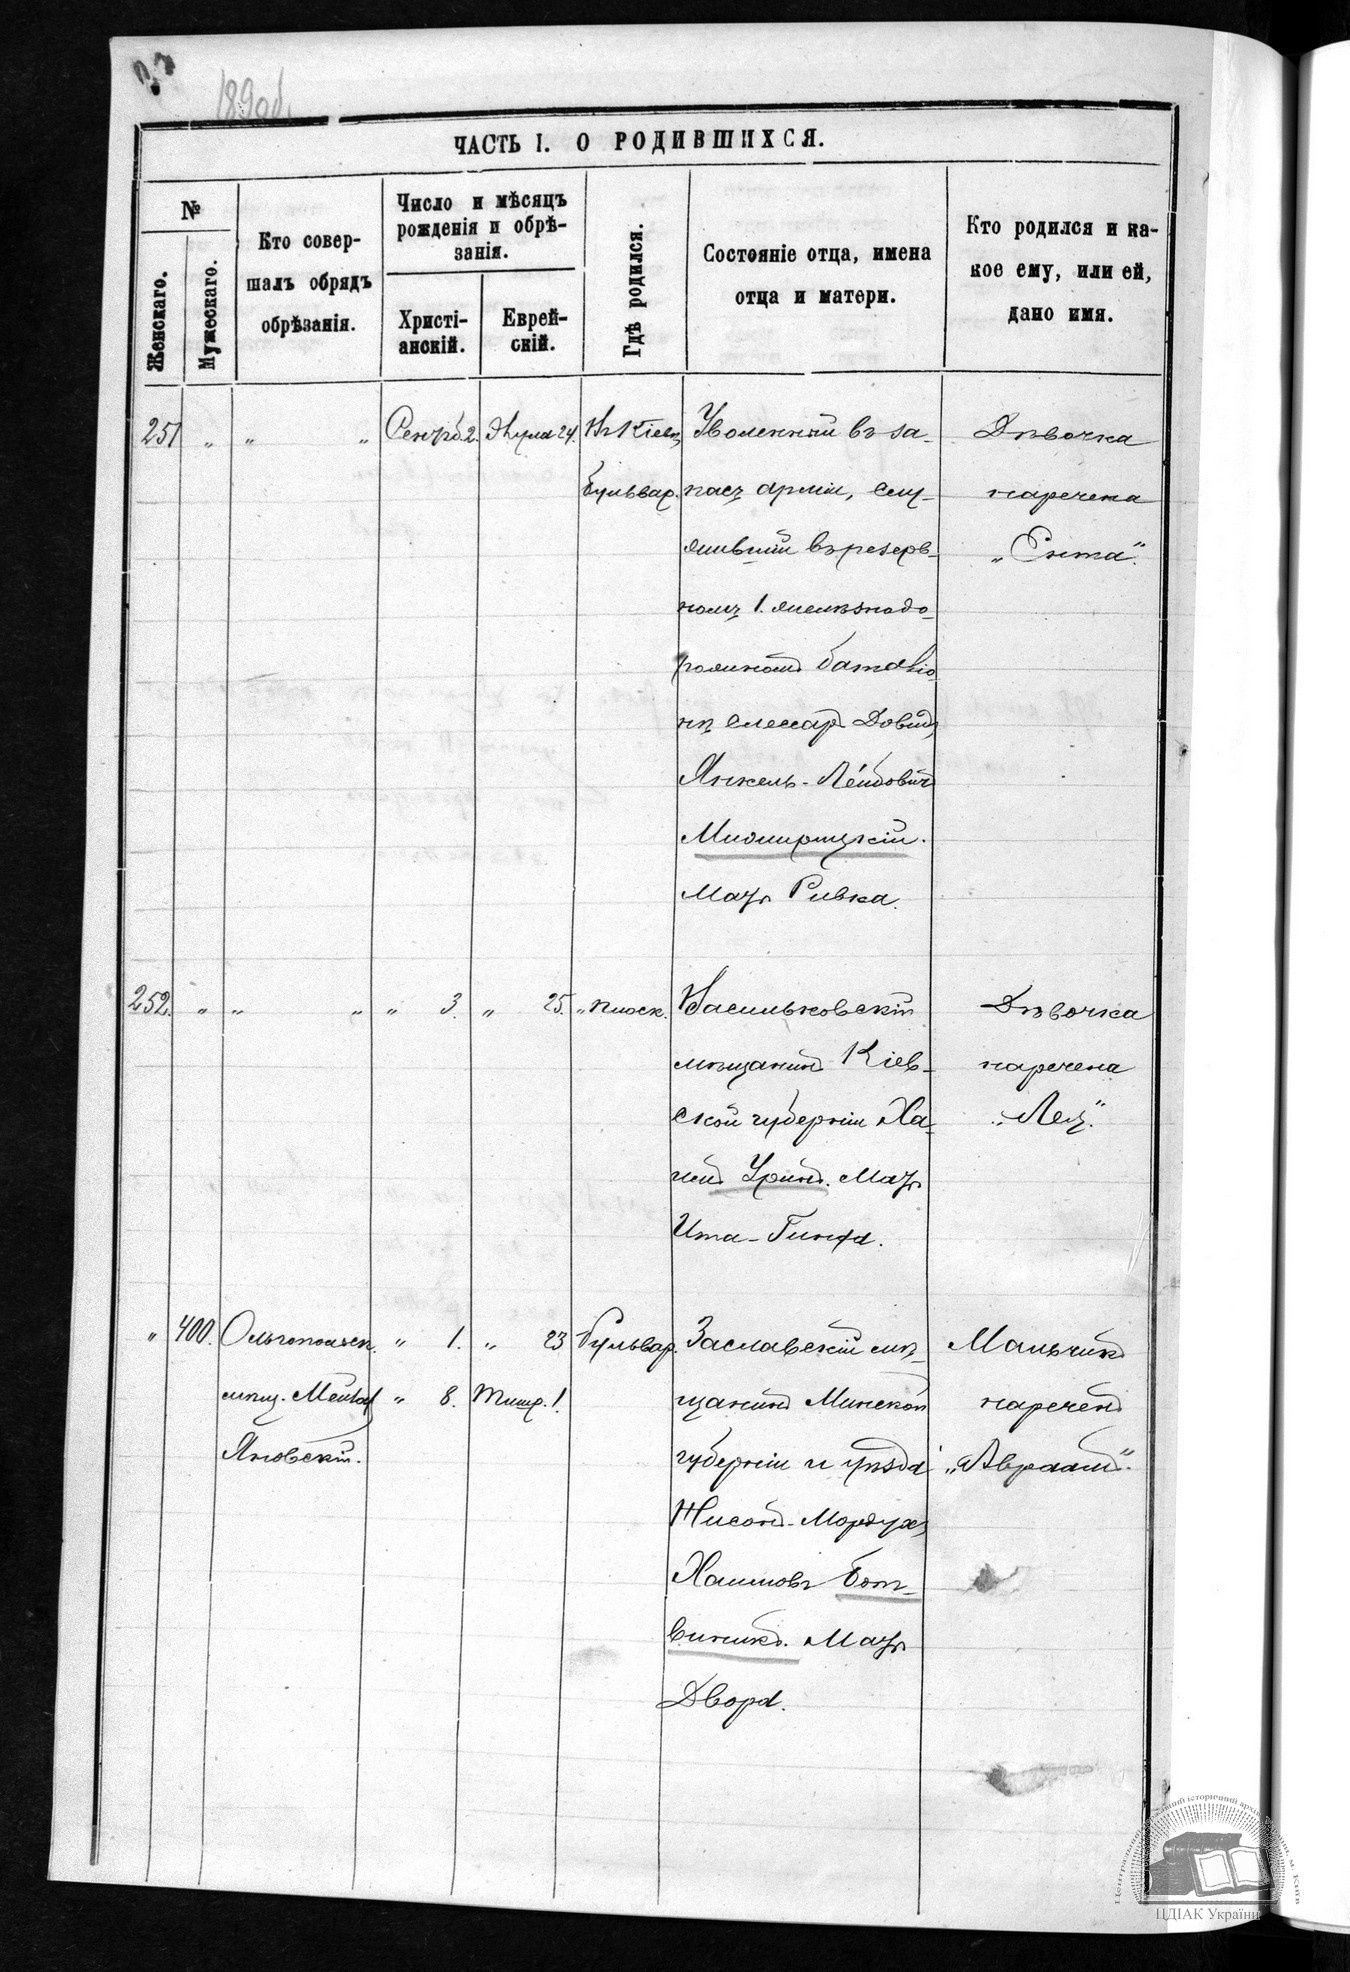 189об.
ЧАСТЬ I. О РОДИВШИХСЯ.
№
Женскаго.
Мужескаго.
Кто совер-
шалъ обрядъ
обрѣзанія.
Число и мѣсяцъ
рожденія и обрѣ-
занія.
Христі-
анскій.
Еврей-
скій.
Гдѣ родился.
Состояніе отца, имена
отца и матери.
Кто родился и ка-
кое ему, или ей,
дано имя.
251 „ „ „ Сентяб. 2. Элула 24. Въ Кіевѣ
бульвар.
Уволенный въ за-
пасъ арміи, слу-
жившій въ резерв-
номъ 1. желѣзнодо-
рожномъ баталіо-
нѣ слесарь Довидъ
Янкель-Лейбовичъ
Мать Ривка.
Дѣвочка
наречена
„Ента“.
252. „ „ „ „ 3. „ 25. „ плоск.
Васильковскій
мѣщанинъ Кіев-
ской губерніи Ха-
имъ Уринъ. Мать
Ита-Гинда.
Дѣвочка
наречена
„Лея“.
„ 400. Ольгопольск.
мѣщ.
Яновскій.
„ 1. „ 23 бульвар.
„ 8. Тишр. 1.
Заславскій мѣ-
щанинъ Минской
губерніи и уѣзда
Нисонъ-Мордухъ
Хаимовъ Бот-
виникъ. Мать
Двора.
Мальчикъ
нареченъ
„Авраамъ“.
Центральний державний історичний архів України, м. Київ
ЦДІАК України